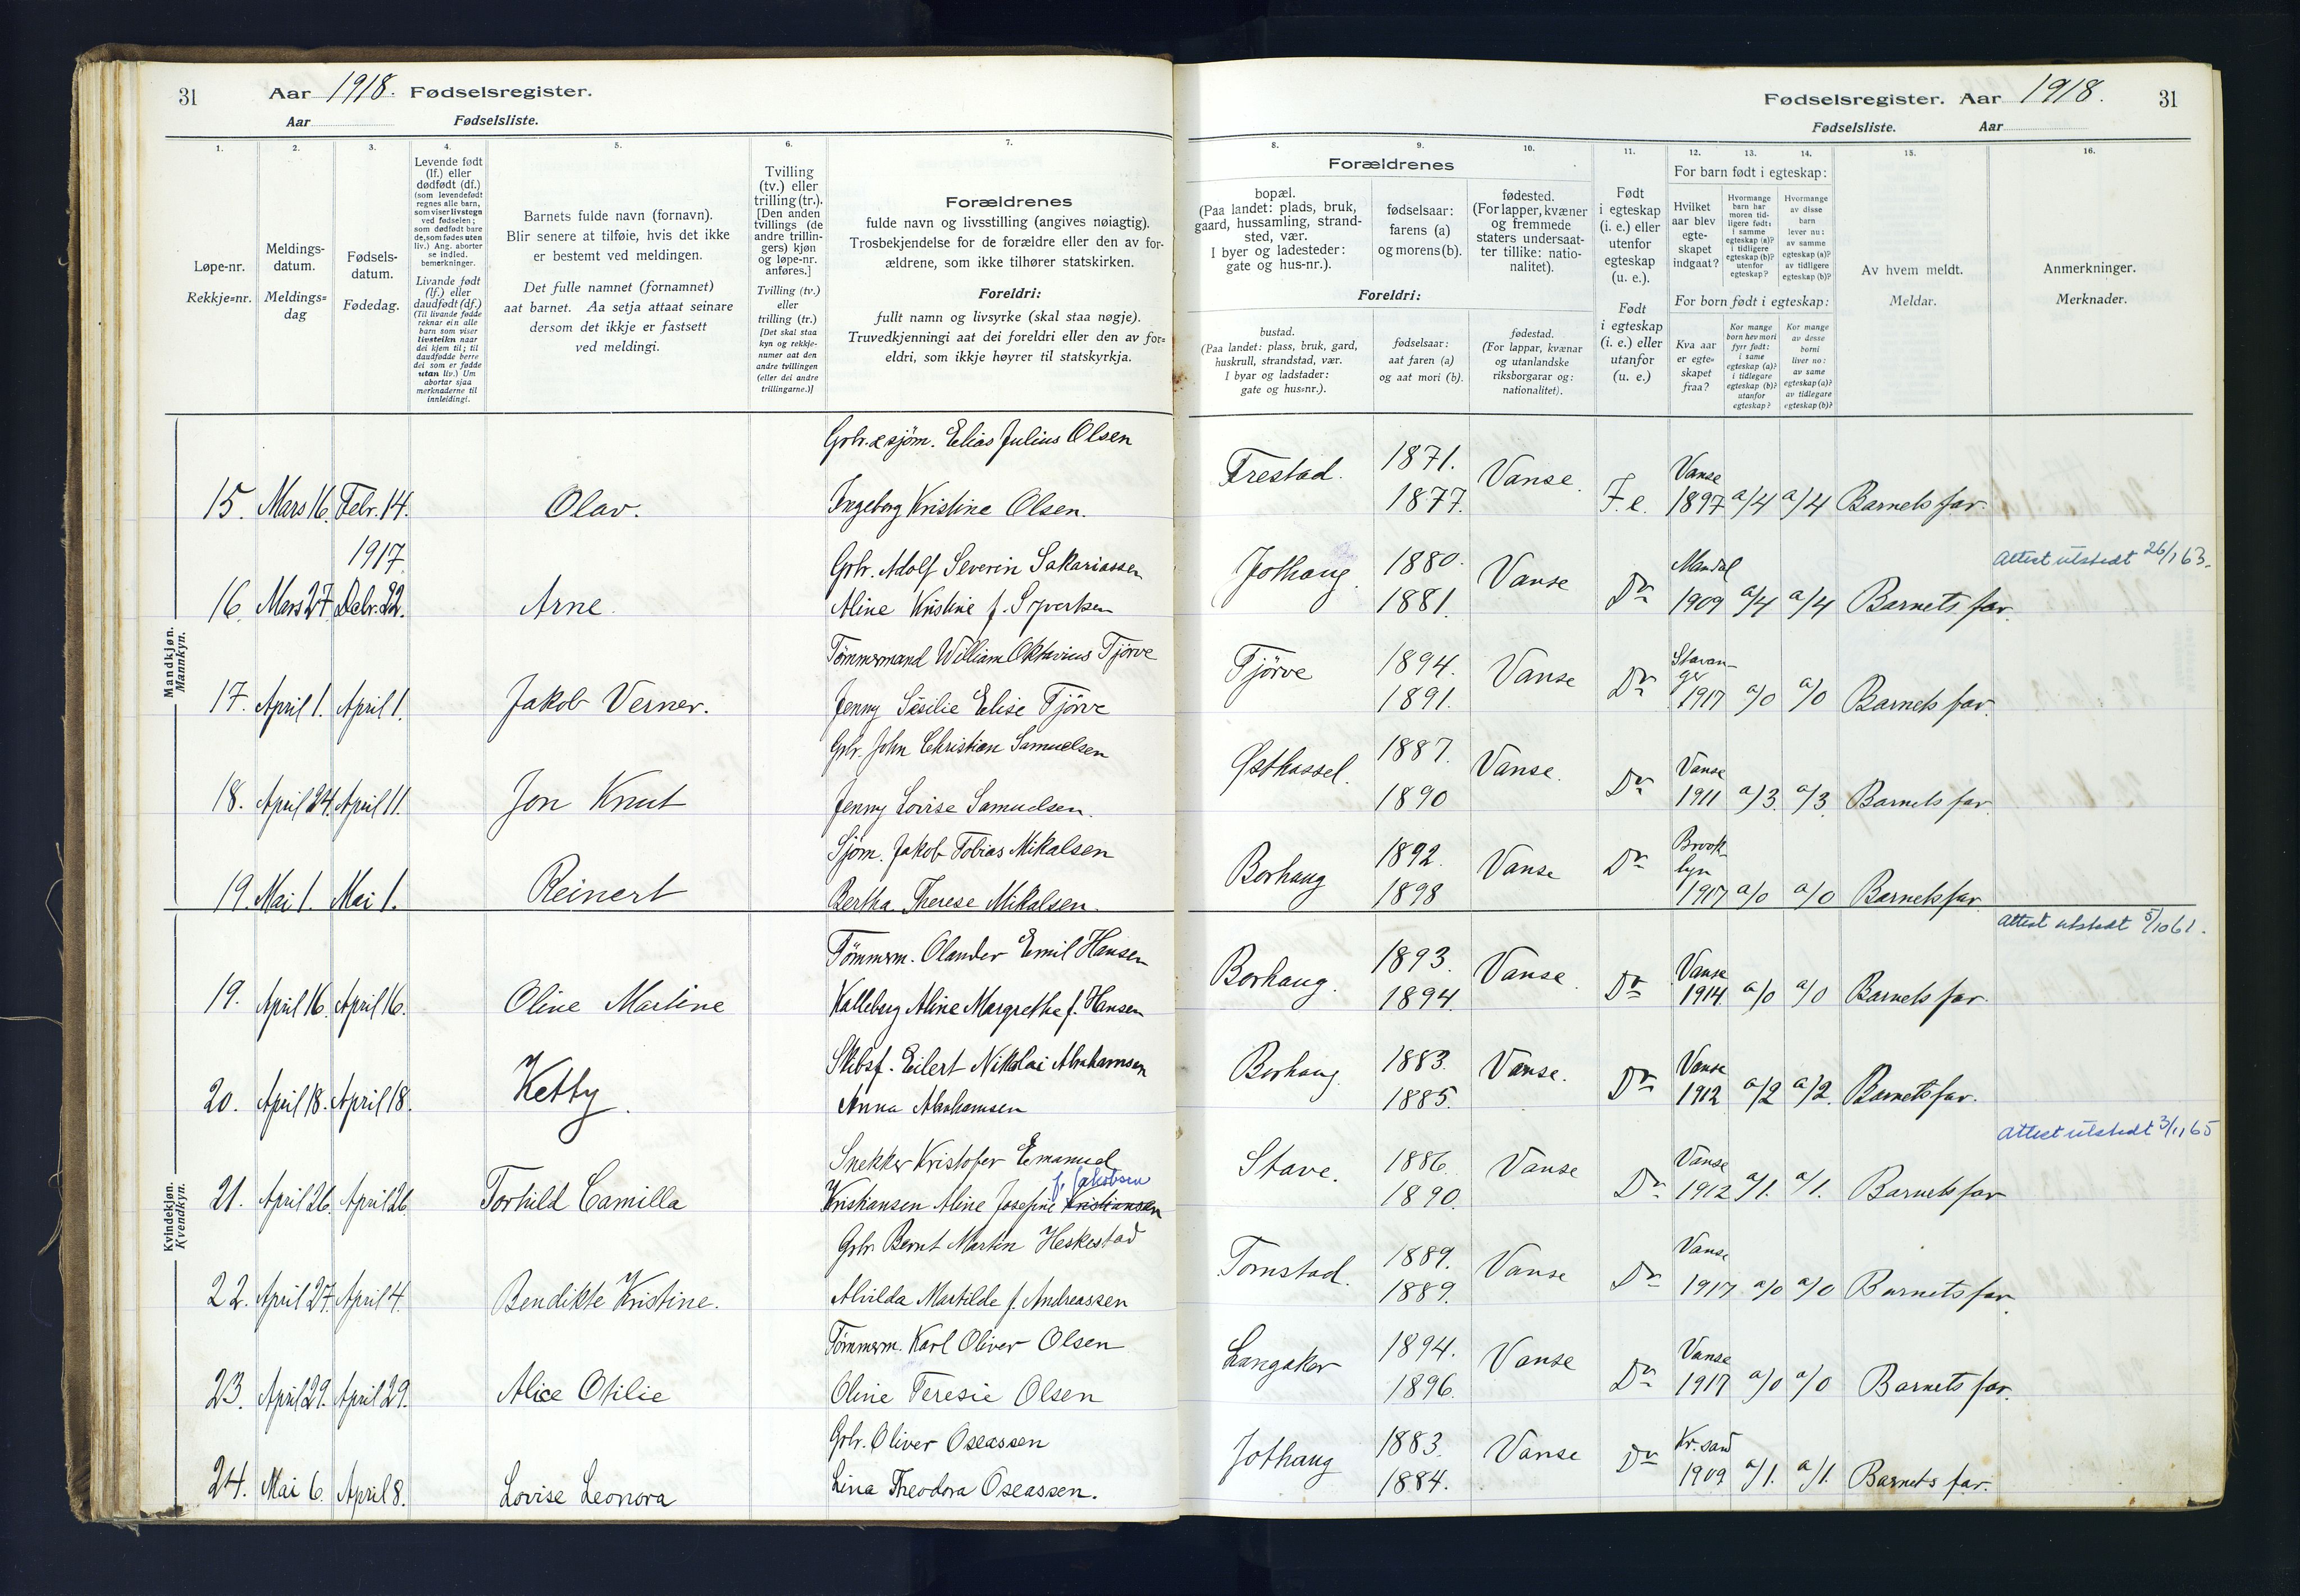 31 Aar 1918. Fødselsregister.
Aar Fødselsliste.
1. 2. 3. 4. 5. 6. 7.
Løpe-nr.
Rekkje-nr.
Meldings-
datum.
Meldings-
dag
Fødsels-
datum.
Fødedag.
Levende født
(lf.) eller
dødfødt (df.)
(som levendefødt
regnes alle barn,
som viser livstegn
ved fødselen;
som dødfødt bare
de, som fødes uten
liv.) Ang. aborter
se indled.
bemerkninger.
Livande født
(lf.) eller
daudfødt (df.)
(Til livande fødde
reknar ein alle
barn som viser
livsteikn naar
dei kjem til; til
daudfødde berre
dei som er fødde
utan liv.) Um
abortar sjaa
merknaderne til
innleidingi.
Barnets fulde navn (fornavn).
Blir senere at tilføie, hvis det ikke
er bestemt ved meldingen.
Det fulle namnet (fornamnet)
aat barnet. Aa setja attaat seinare
dersom det ikkje er fastsett
ved meldingi.
Tvilling
(tv.) eller
trilling (tr.).
[Den anden
tvillings (de
andre trillin-
gers) kjøn
og løpe-nr.
anføres.]
Tvilling (tv.)
eller
trilling (tr.)
[Det skal staa
kyn og rekkje-
numer aat den
andre tvillingen
(eller dei andre
trillingarne.)]
Forældrenes
fulde navn og livsstilling (angives nøiagtig).
Trosbekjendelse for de forældre eller den av for-
ældrene, som ikke tilhører statskirken.
Foreldri:
fullt namn og livsyrke (skal staa nøgje).
Truvedkjenningi aat dei foreldri eller den av for-
eldri, som ikkje høyrer til statskyrkja.
Mandkjøn.
Mannkyn.
Gbr. & sjøm. Elias Julius Olsen
15. Mars 16. Febr. 14. Olav. Ingeborg Kristine Olsen.
1917. Gbr. Adolf Severin Sakariassen
16. Mars 27. Debr. 22. Arne. Aline Kristine f. Syvertsen
Tømmermand William Oktavius Tjörve
17. April 1. April 1. Jakob Verner. Jenny Sesilie Elise Tjörve
Gbr. John Christian Samuelsen
18. April 24. April 11. Jon Knut Jenny Lovise Samuelsen.
Sjøm. Jakob Tobias Mikalsen
19. Mai 1. Mai 1. Reinert Bertha Therese Mikalsen.
Kvindekjøn.
Kvendkyn.
Tömmerm. Olander Emil Hansen
19. April 16. April 16. Oline Martine Kalleberg Aline Margrethe f. Hansen
Skibsf. Eilert Nikolai Abrahamsen
20. April 18. April 18. Ketty. Anna Abrahamsen
Snekker Kristofer Emanuel
f. Jakobsen
21. April 26. April 26. Torhild Camilla Kristiansen Aline Josefine Kristiansen
Gbr. Bernt Martin Heskestad
22. April 27. April 4. Bendikte Kristine. Alvilda Martilde f. Andreassen
Tömmerm. Karl Oliver Olsen
23. April 29. April 29. Alice Otilie Oline Teresie Olsen
Gbr. Oliver Oseassen
24. Mai 6. April 8. Lovise Leonora Lina Theodora Oseassen.
Fødselsregister. Aar 1918. 31
Fødselsliste. Aar
8. 9. 10. 11. 12. 13. 14. 15. 16.
Forældrenes
bopæl.
(Paa landet: plads, bruk,
gaard, hussamling, strand-
sted, vær.
I byer og ladesteder:
gate og hus-nr.).
fødselsaar:
farens (a)
og morens (b).
fødested.
(For lapper, kvæner
og fremmede
staters undersaat-
ter tillike: natio-
nalitet).
Foreldri:
bustad.
(Paa landet: plass, bruk, gard,
huskrull, strandstad, vær.
I byar og ladstader:
gate og hus-nr.).
fødselsaar:
aat faren (a)
og aat mori (b).
fødestad.
(For lappar, kvænar
og utanlandske
riksborgarar og:
nationalitet).
Født
i egteskap
(i. e.) eller
utenfor
egteskap
(u. e.).
Født
i egteskap
(i. e.) eller
utanfor
(u. e.)
For barn født i egteskap:
Hvilket
aar blev
egte-
skapet
indgaat?
Hvormange
barn har
moren tid-
ligere født:
i samme
egteskap (a)?
i tidligere
egteskap (b)?
utenfor
egteskap?
Hvormange
av disse
barn
lever nu:
av samme
egteskap (a)?
av tidligere
egteskap (b)?
For born født i egteskap:
Kva aar
er egte-
skapet
fraa?
Kor mange
born hev mori
fyrr født:
i same
egteskap (a)?
i tidlegare
egteskap (b)?
utanfor
egteskap?
Kor mange
av desse
borni
liver no:
av same
egteskap (a)?
av tidlegare
egteskap (b)?
Av hvem meldt.
Meldar.
Anmerkninger.
Merknader.
Trestad. 1871. Vanse. Vanse
1877. F. e. 1897 a/4 a/4 Barnets far.
Jothaug. 1880. Vanse Mandal Attest utstedt 26/1 63.
1881. Do 1909 a/4 a/4 Barnets far.
Tjörve 1894. Vanse Stavan-
ger
1891. Do 1917 a/0 a/0 Barnets far.
Østhassel. 1887. Vanse. Vanse
1890 Do 1911 a/3. a/3. Barnets far
Borhaug 1892. Vanse Do Brook-
lyn
1898 1917 a/0 a/0 Barnets far
Attest utstedt 5/10 61.
Borhaug. 1893. Vanse. Vanse
1894. Do 1914. a/0 a/0 Barnets far.
Borhaug. 1883. Vanse. Vanse
1885. Do 1912 a/2 a/2. Barnets far.
Attest utstedt 3/11 65
Stave. 1886. Vanse Vanse
1890. Do 1912 a/1. a/1. Barnets far
Tomstad. 1889. Vanse Vanse
1889. Do 1917 a/0 a/0 Barnets far.
Langaker 1894. Vanse Vanse
1896. Do 1917 a/0 a/0 Barnets far.
Jothaug 1883. Vanse Kr.sand
1884. Do 1909 a/1. a/1. Barnets far.